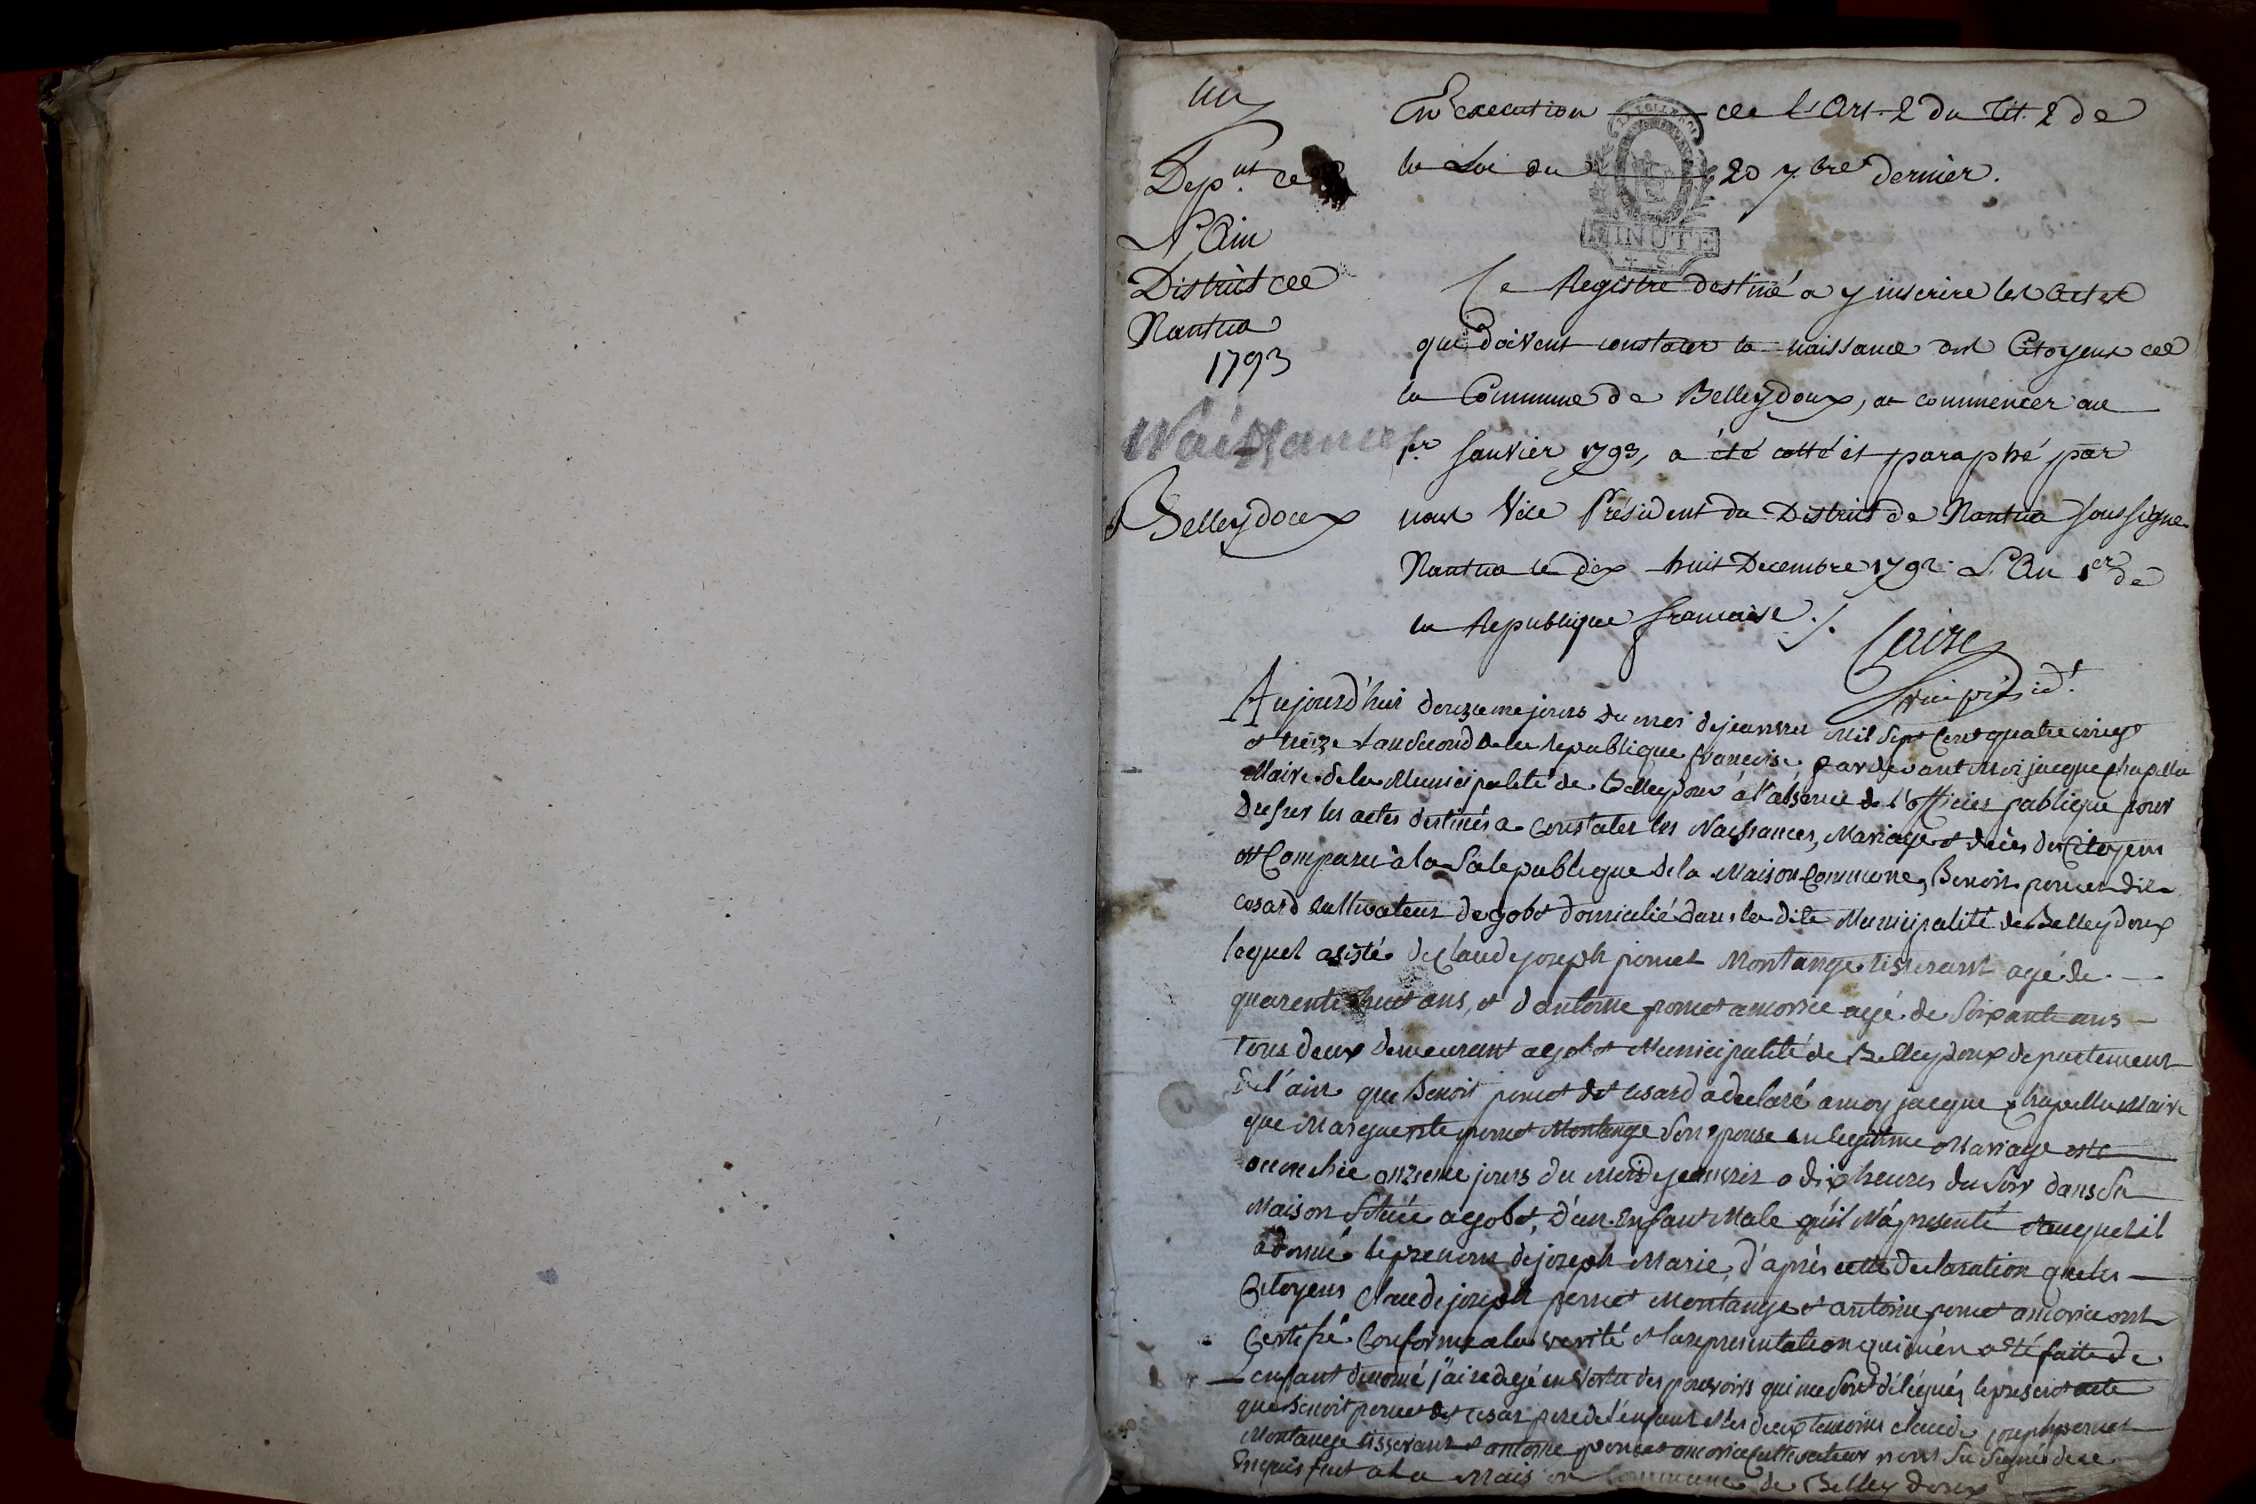 un
Dep.nt de
L'Ain
District de
Nantua
1793
Naissances
Belleydoux
En Execution de l'Art. 2 du Tit. 2 de
la Loi du 20 7.bre dernier.
MINUTE
Ce Registre destiné a y inscrire les Actes
qui doivent constater la naissance des Citoyens de
la Commune de Belleydoux, at commencer au
1.er Janvier 1793, a été cotté et paraphé par
nous Vice Président du District de Nantua soussigné
Nantua le dix huit Decembre 1792. L'An 1er de
la Republique francaise ./.
vice présid.t
Aujourd'hui douzieme jours du moi de jeanvier Mil Sept Cent quatre vingt
et treize l'an Second de la republique francoise pardevant Moi jacque chapelle
Maire de la Municipalité de Belleydoux à l'absence de l'officier publique pour
Dresser les actes destinés a Constater les Naissances, Mariage et deces des Citoyens
est Comparu à la Sale publique de la Maison Commune, Benoit pernet dit
cesard Cultivateur de gobet domicilié dans la dite Municipalité de Belleydoux
lequel asisté de Claude joseph pernet Montange tisserant agé de
quarente huit ans, et d'antoine pernet amorice agé de Soixante ans
tous deux demeurant a gobet Municipalité de Belleydoux departement
de l'ain que Benoit pernet dit cesard a declaré a moy jacque chapelle Maire
que Marguerite pernet Montange Son epouse en legitime Mariage este
accouchée onzieme jours du Moi de jeanvier a dix heures du Soir dans Sa
Maison Située a gobet, d'un Enfant Male qu'il M'a presenté et auquel il
a donné le prenom de joseph Marie, d'après cette declaration que les
Citoyens Claude joseph pernet Montange et antoine pernet amorice ont
Certifié Conforme a la verité et la representation qui m'en a été faite de
L'enfant denomé j'ai redigé en vertu des pouvoirs qui me Sont délégués le present acte
que Benoit pernet dit cesar pere de l'enfant et les deux temoins claude joseph pernet
Montange tisserant et antoine pernet amorice cultivateur n'ont Su Signé de ce
Enquis fait a la Maison Commune de Belleydoux